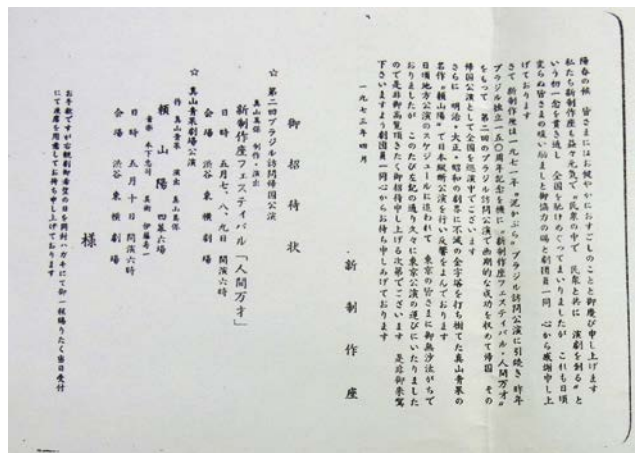 陽春の候 皆さまにはお健やかにおすごしのことと御慶び申し上げます
私たち新制作座も益々元気で〝民衆の中で 民衆と共に 演劇を創る〟と
いう初一念を貫き通し 全国を駈けめぐってまいりましたが これも日頃
変らぬ皆さまの暖い励ましと御協力の賜と劇団員一同 心から感謝申し上
げております
さて 新制作座は一九七一年〝泥かぶら〟ブラジル訪問公演に引続き 昨年
ブラジル独立一五〇周年記念を機に〝新制作座フェスティバル・人間万才〟
をもって 第二回のブラジル訪問公演で画期的な成功を収めて帰国 その
帰国公演として全国を巡演中でございます
さらに 明治・大正・昭和の劇界に不滅の金字塔を打ち樹てた真山青果の
名作〝頼山陽〟で日本縦断公演を行い反響をよんでおります
日頃地方公演のスケジュールに追われて 東京の皆さまに御無沙汰がちで
おりましたが このたび左記の通り久々に東京公演の運びにいたりました
ので是非御高覧頂きたく御招待申し上げる次第でございます 是非御来駕
下さいますよう劇団員一同心からお待ち申しあげております
一九七三年四月
新制作座
御招待状
☆ 第二回ブラジル訪問帰国公演
真山美保 制作・演出
新制作座フェスティバル「人間万才」
日時 五月七、八、九日 開演六時
会場 渋谷 東横劇場
☆ 真山青果劇場公演
作 真山青果 演出 真山美保
頼山陽 四幕六場
音楽 木下忠司 美術 伊藤寿一
日時 五月十日 開演六時
会場 渋谷 東横劇場
様
お手数ですが御観劇御希望の日を同封ハガキにて御一報賜りたく当日受付
にて座席を用意してお待ち申し上げております